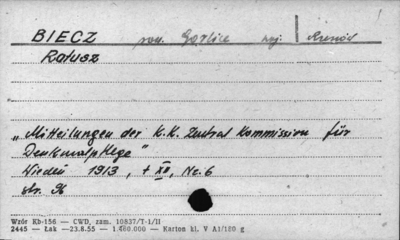 BIECZ pow. Gorlice woj. Rzeszów
Ratusz
„Mitteilungen der K.K. Zentral Kommission für
Denkmalpflege"
Wiedeń 1913, t XII, Nr. 6
str. 96
Wzór Kb-156 — CWD, zam. 10837/T-1/II
2445 — Łak —23.8.55 — 1.400.000 — Karton kl. V A1/180 g